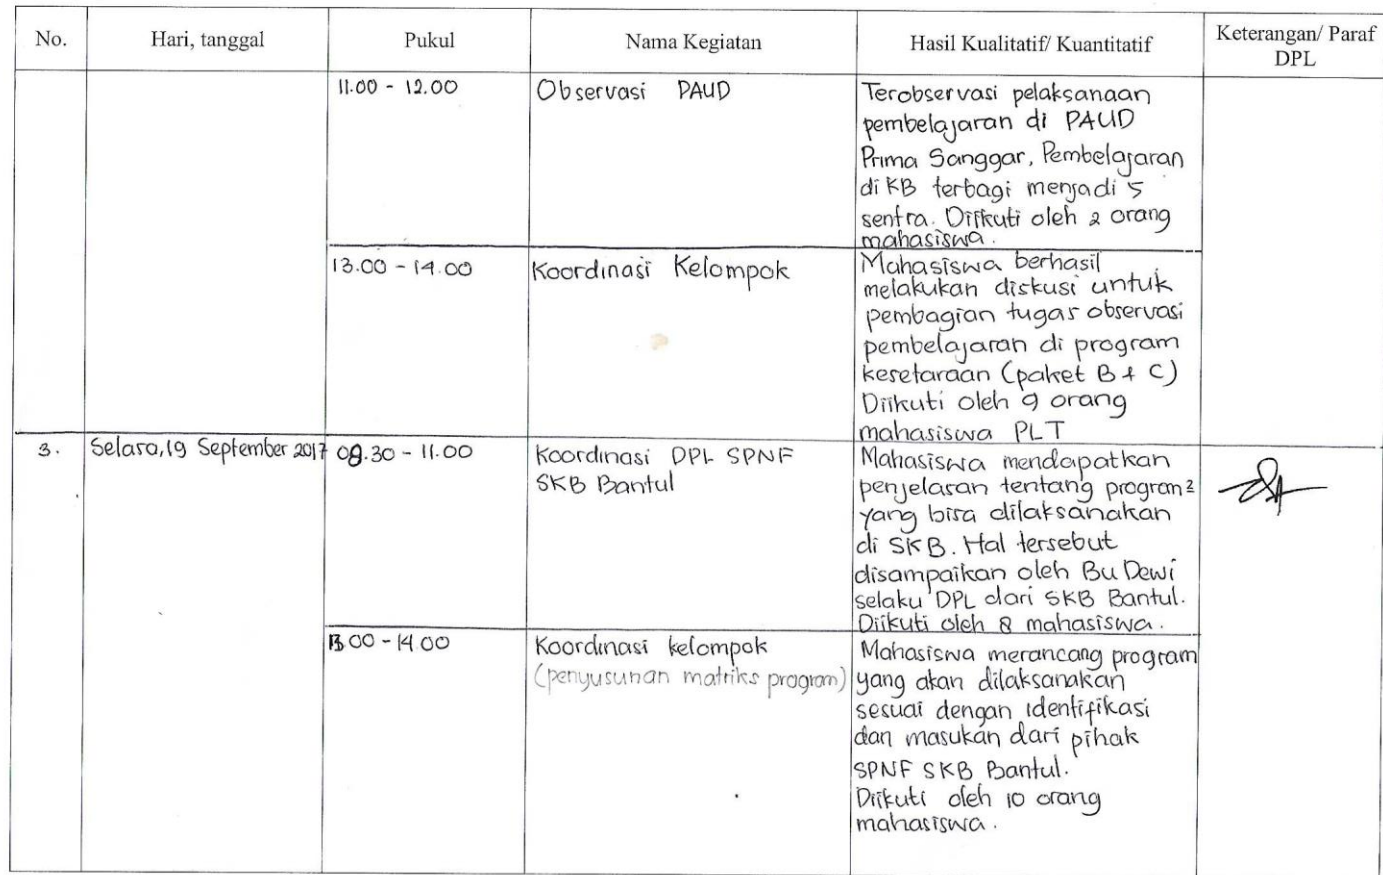 No.
Hari, tanggal
Pukul
Nama Kegiatan
Hasil Kualitatif/ Kuantitatif
Keterangan/ Paraf
DPL
11.00 - 12.00
Observasi PAUD
Terobservasi pelaksanaan
pembelajaran di PAUD
Prima Sanggar, Pembelajaran
di KB terbagi menjadi 5
sentra. Diikuti oleh 2 orang
mahasiswa.
13.00 - 14.00
Koordinasi Kelompok
Mahasiswa berhasil
melakukan diskusi untuk
pembagian tugas observasi
pembelajaran di program
kesetaraan (paket B + C)
Diikuti oleh 9 orang
mahasiswa PLT
3.
Selasa, 19 September 2017
08.30 - 11.00
Koordinasi DPL SPNF
SKB Bantul
Mahasiswa mendapatkan
penjelasan tentang program²
yang bisa dilaksanakan
di SKB. Hal tersebut
disampaikan oleh Bu Dewi
selaku DPL dari SKB Bantul.
Diikuti oleh 8 mahasiswa.
13.00 - 14.00
Koordinasi kelompok
(penyusunan matriks program)
Mahasiswa merancang program
yang akan dilaksanakan
sesuai dengan identifikasi
dan masukan dari pihak
SPNF SKB Bantul.
Diikuti oleh 10 orang
mahasiswa.